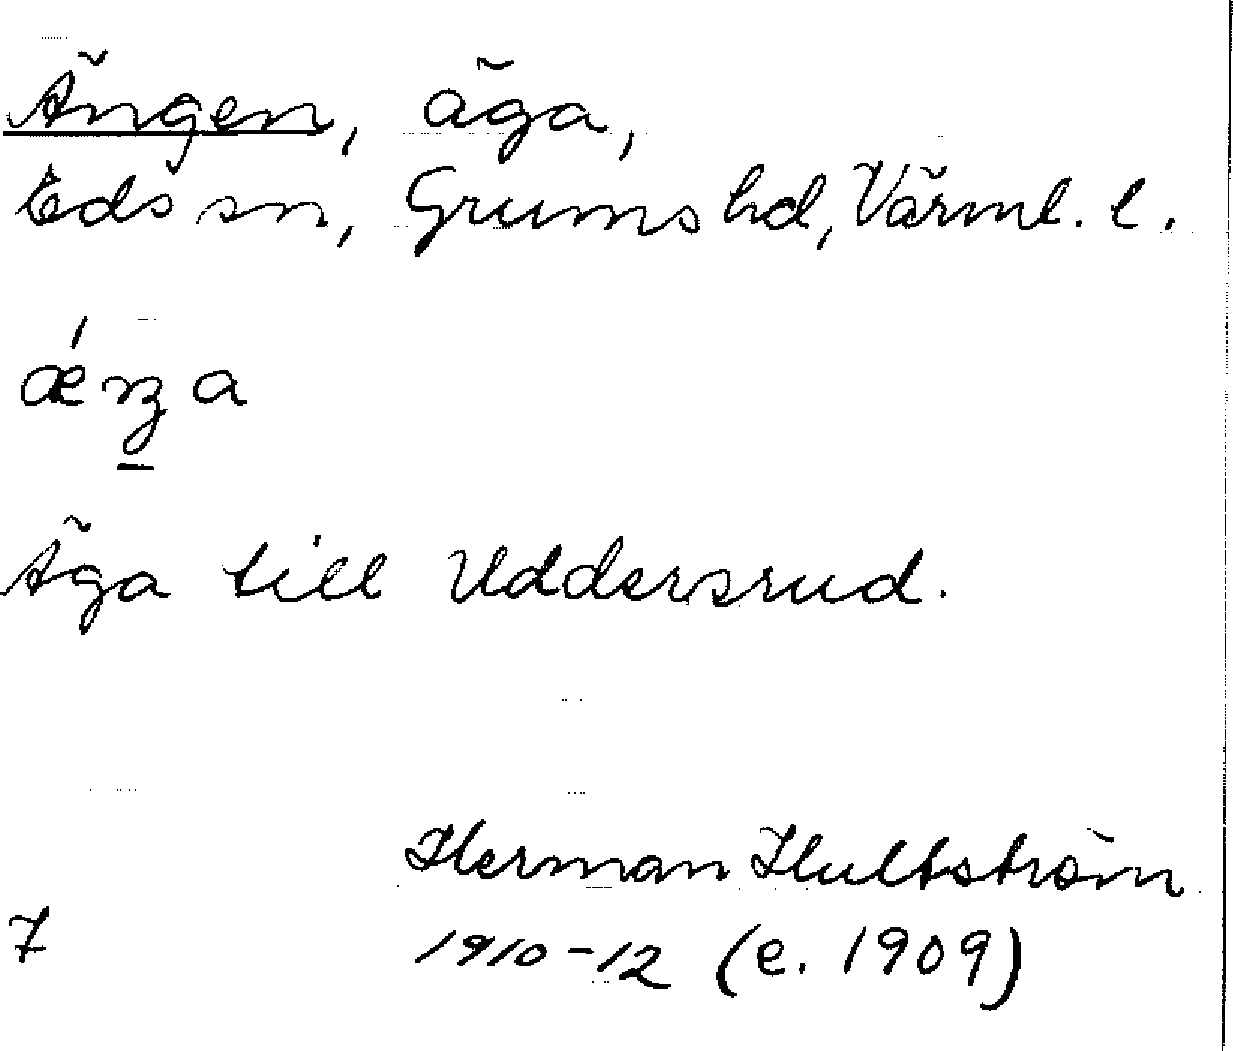 Ängen, äga,
Eds sn, Grums hd, Värml. l.
Äga till Uddersrud.
Herman Hultström
7 1910-12 (e. 1909)